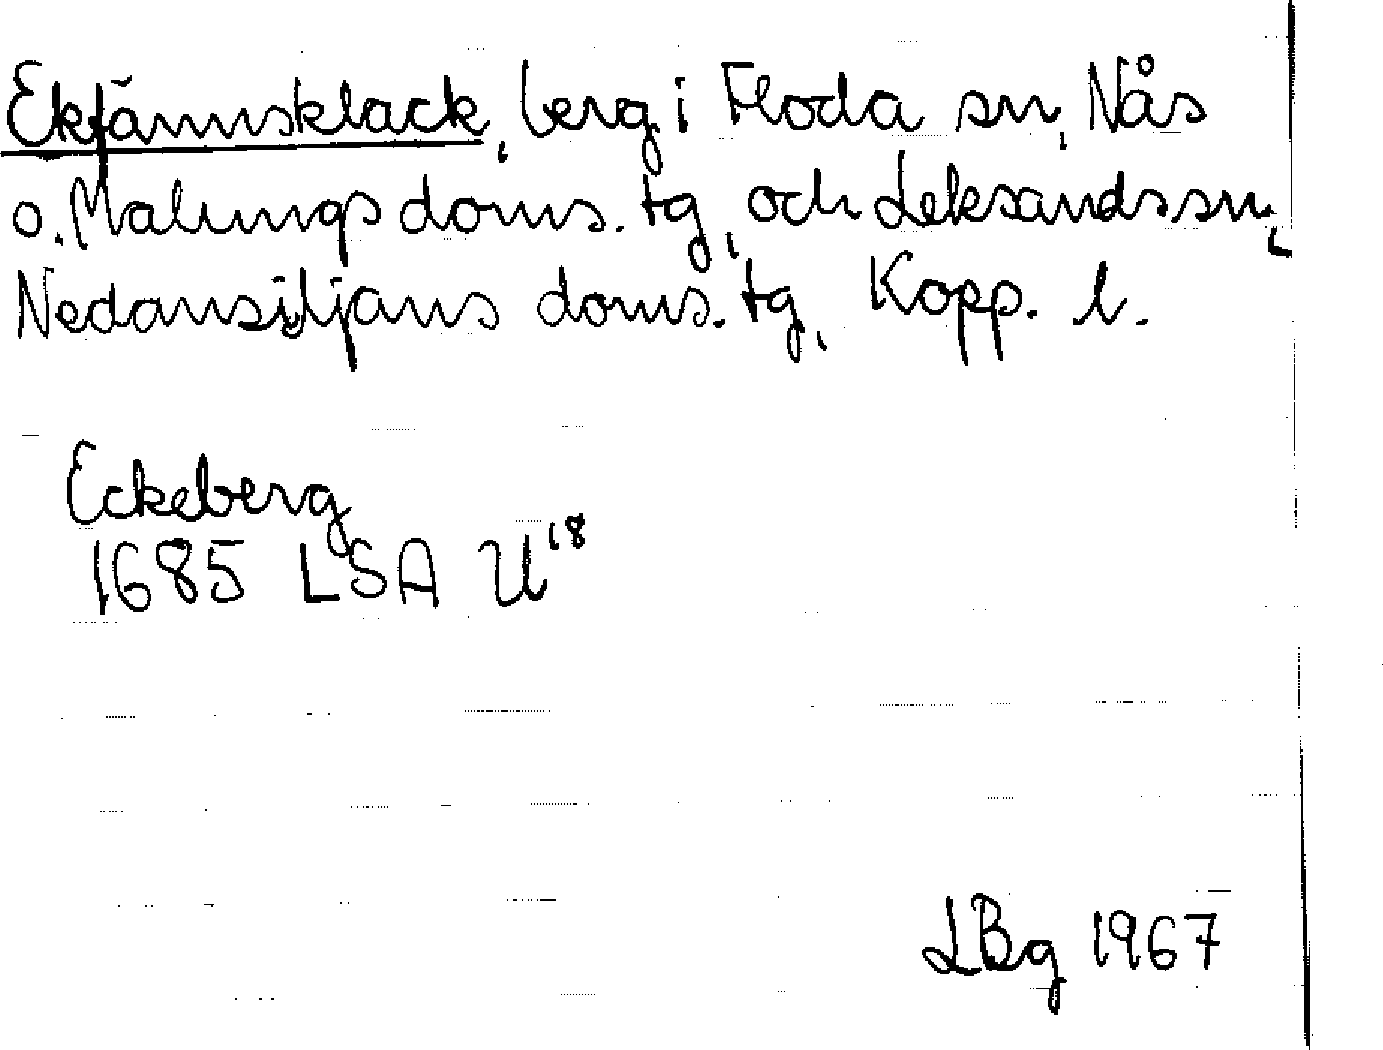 Ekfännsklack, berg i Floda sn, Nås
o. Malungs doms. tg, och Leksands sn,
Nedansiljans doms. tg, Kopp. l.
Eckeberg
1685 LSA U18
LBg 1967